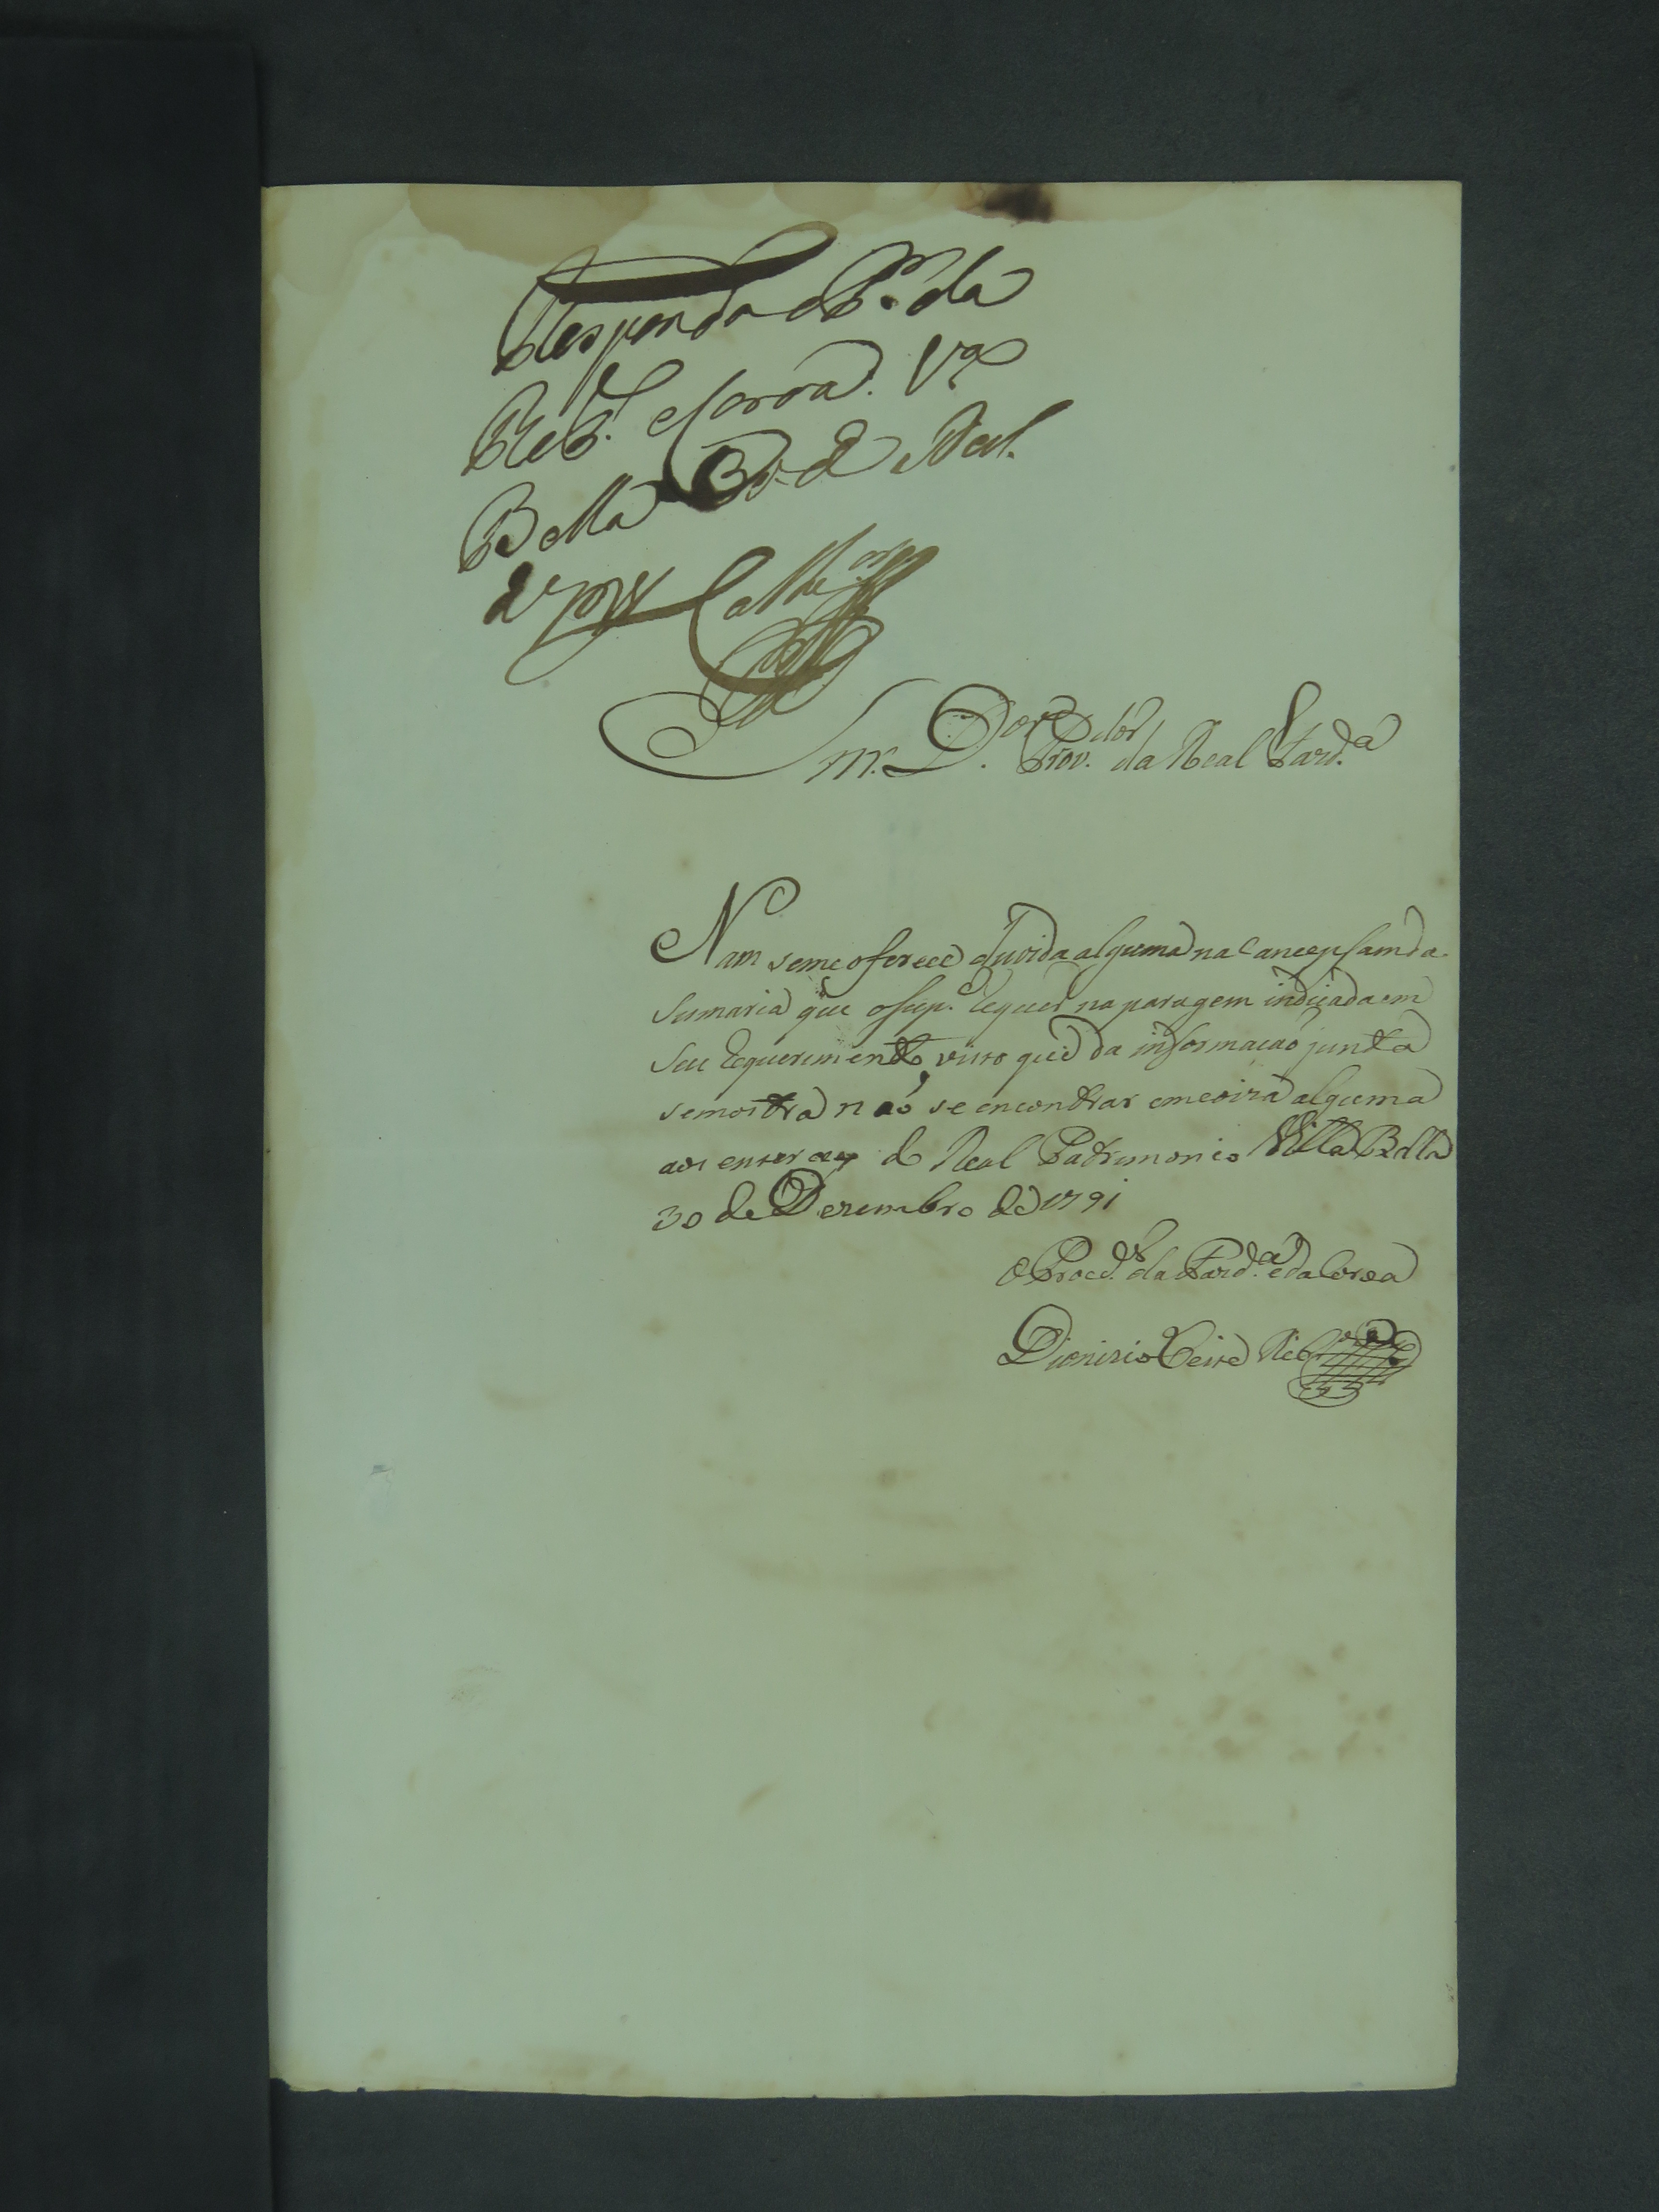 Responda o P.or da
Corôa. V.a
Bella de
de 1791
Snr. D.or Prov.dor da Real Fazd.a
Nam seme oferece duvida alguma na Concepsam da
Sumaria que o sup.e Requer na paragem indicada em
Seu Requerimento, visto que da informacaó junta
semostra naó se encontrar em coiza alguma
aos do Real Patrimonio Villa Bella
30 de Dezembro de 1791
O Procd.or da Fazd.a e da Coroa
Dionizio